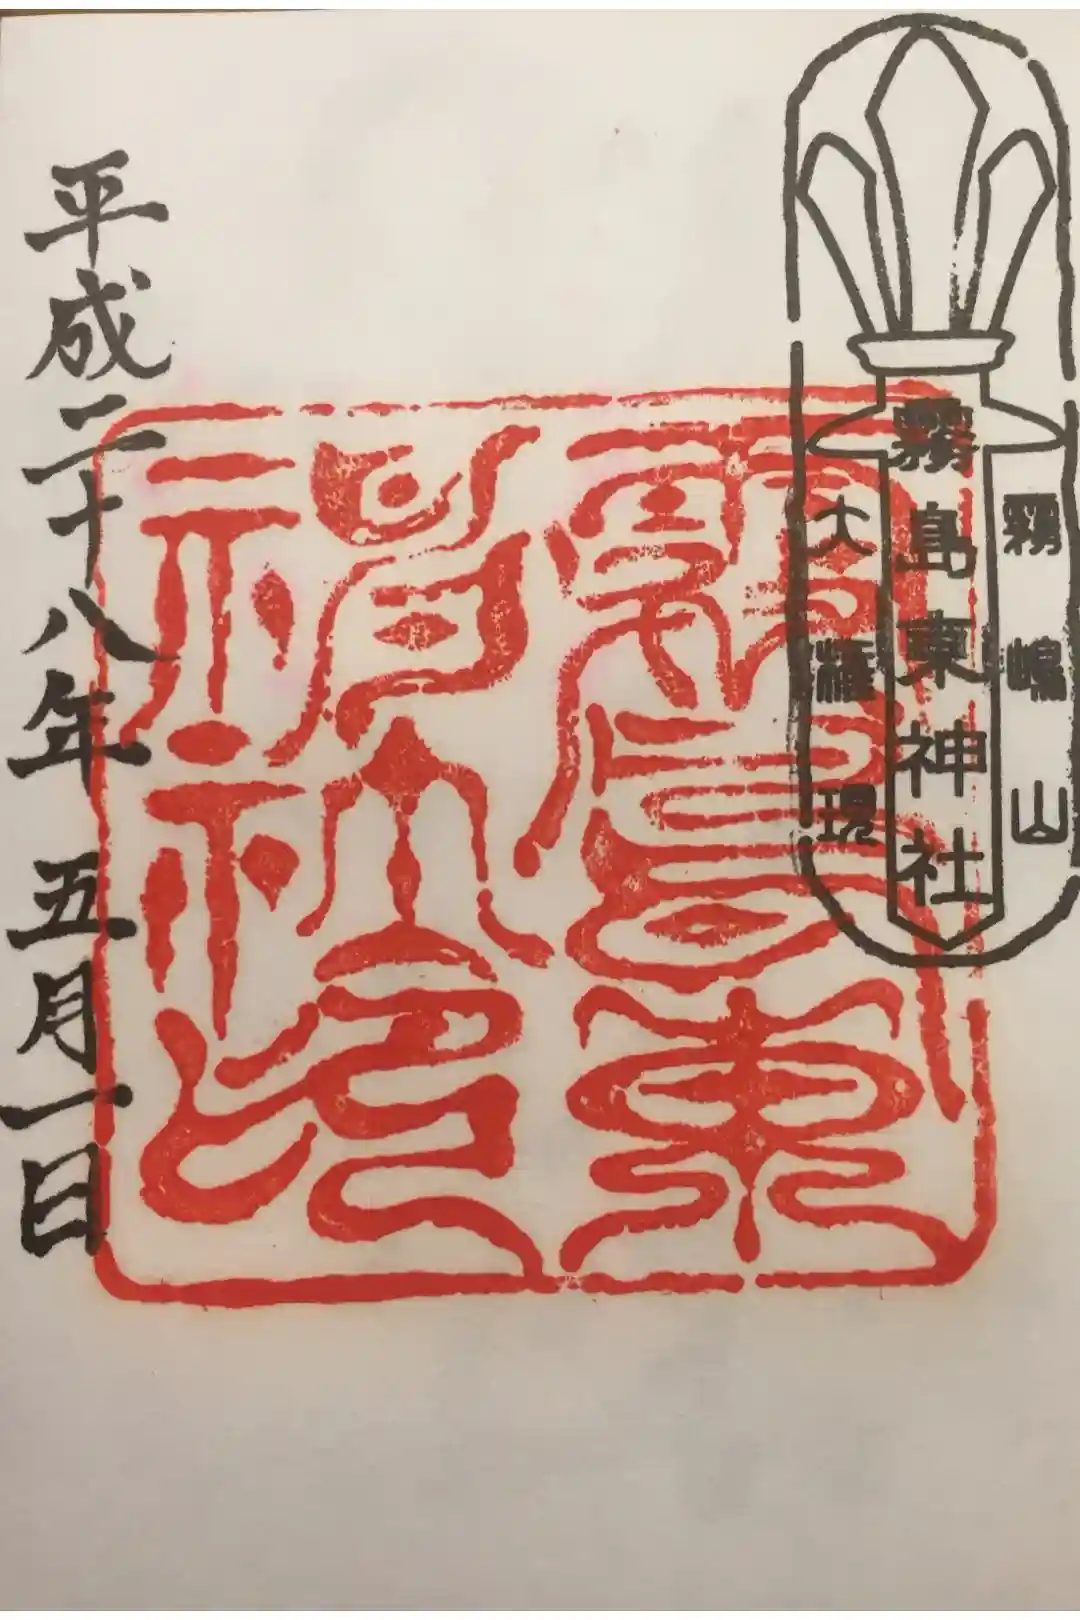 霧嶋山
霧島東神社
大權現
霧島東
神社印
平成二十八年 五月一日